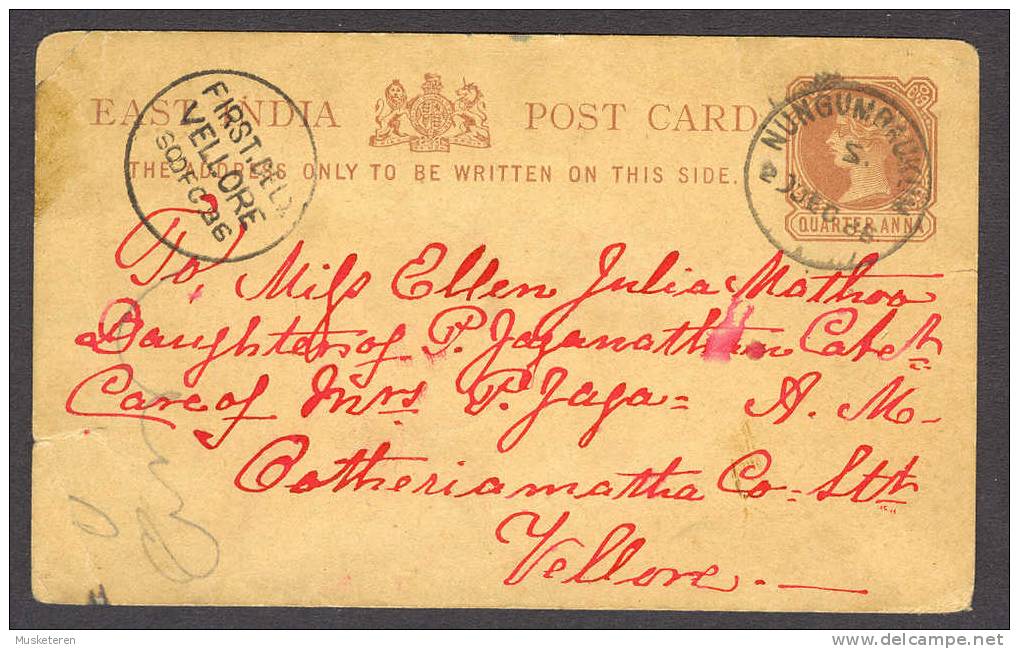 EAST INDIA POST CARD
THE ADDRESS ONLY TO BE WRITTEN ON THIS SIDE.
FIRST. DEL
VELLORE
86
S.
QUARTER ANNA
To, Miss Ellen Julia Mathoo
Daughter of P. Jaganatham Catect
Care of Mrs P. Jaga= A. M.
Cotheriamatha Co= Stt
Vellore.
Musketeren
delcampe.net